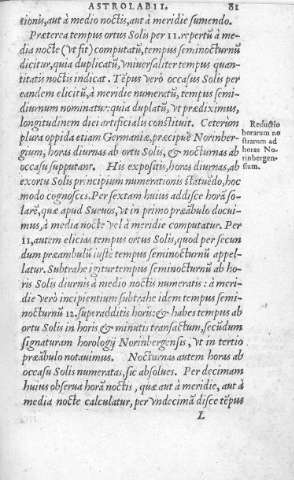 ASTROLABII. 81
tionis, aut à medio noctis, aut à meridie sumendo.
Præterea tempus ortus Solis per 11. repertũ à me-
dia nocte (vt fit) computatũ, tempus seminocturnũ
dicitur, quia duplicatũ, vniuersaliter tempus quan-
titatis noctis indicat. Tẽpus verò occasus Solis per
eandem elicitũ, à meridie numeratũ, tempus semi-
diurnum nominatur: quia duplatũ, vt prædiximus,
longitudinem diei artificialis constituit. Ceterùm
plura oppida etiam Germaniæ, præcipuè Norinber-
gium, horas diurnas ab ortu Solis, & nocturnas ab
occasu supputant. His expositis, horas diurnas, ab
exortu Solis principium numerationis statuẽdo, hoc
modo cognosces. Per sextam huius addisce horã so-
larẽ, quæ apud Sueuos, vt in primo præãbulo docui-
mus, à media nocte vel à meridie computatur. Per
11, autem elicias tempus ortus Solis, quod per secun
dum præambulũ iustè tempus seminocturnũ appel-
latur. Subtrahe igitur tempus seminocturnũ ab ho-
ris Solis diurnis à medio noctis numeratis: à meri-
die verò incipientium subtrahe idem tempus semi-
nocturnũ 12. superadditis horis: & habes tempus ab
ortu Solis in horis & minutis transactum, secũdum
signaturam horologij Norinbergensis, vt in tertio
præãbulo notauimus. Nocturnas autem horas ab
occasu Solis numeratas, sic absolues. Per decimam
huius obserua horã noctis, quæ aut à meridie, aut à
media nocte calculatur, per vndecimã disce tẽpus
L
Reductio
horarum no
strarum ad
horas No-
rinbergen-
sium.